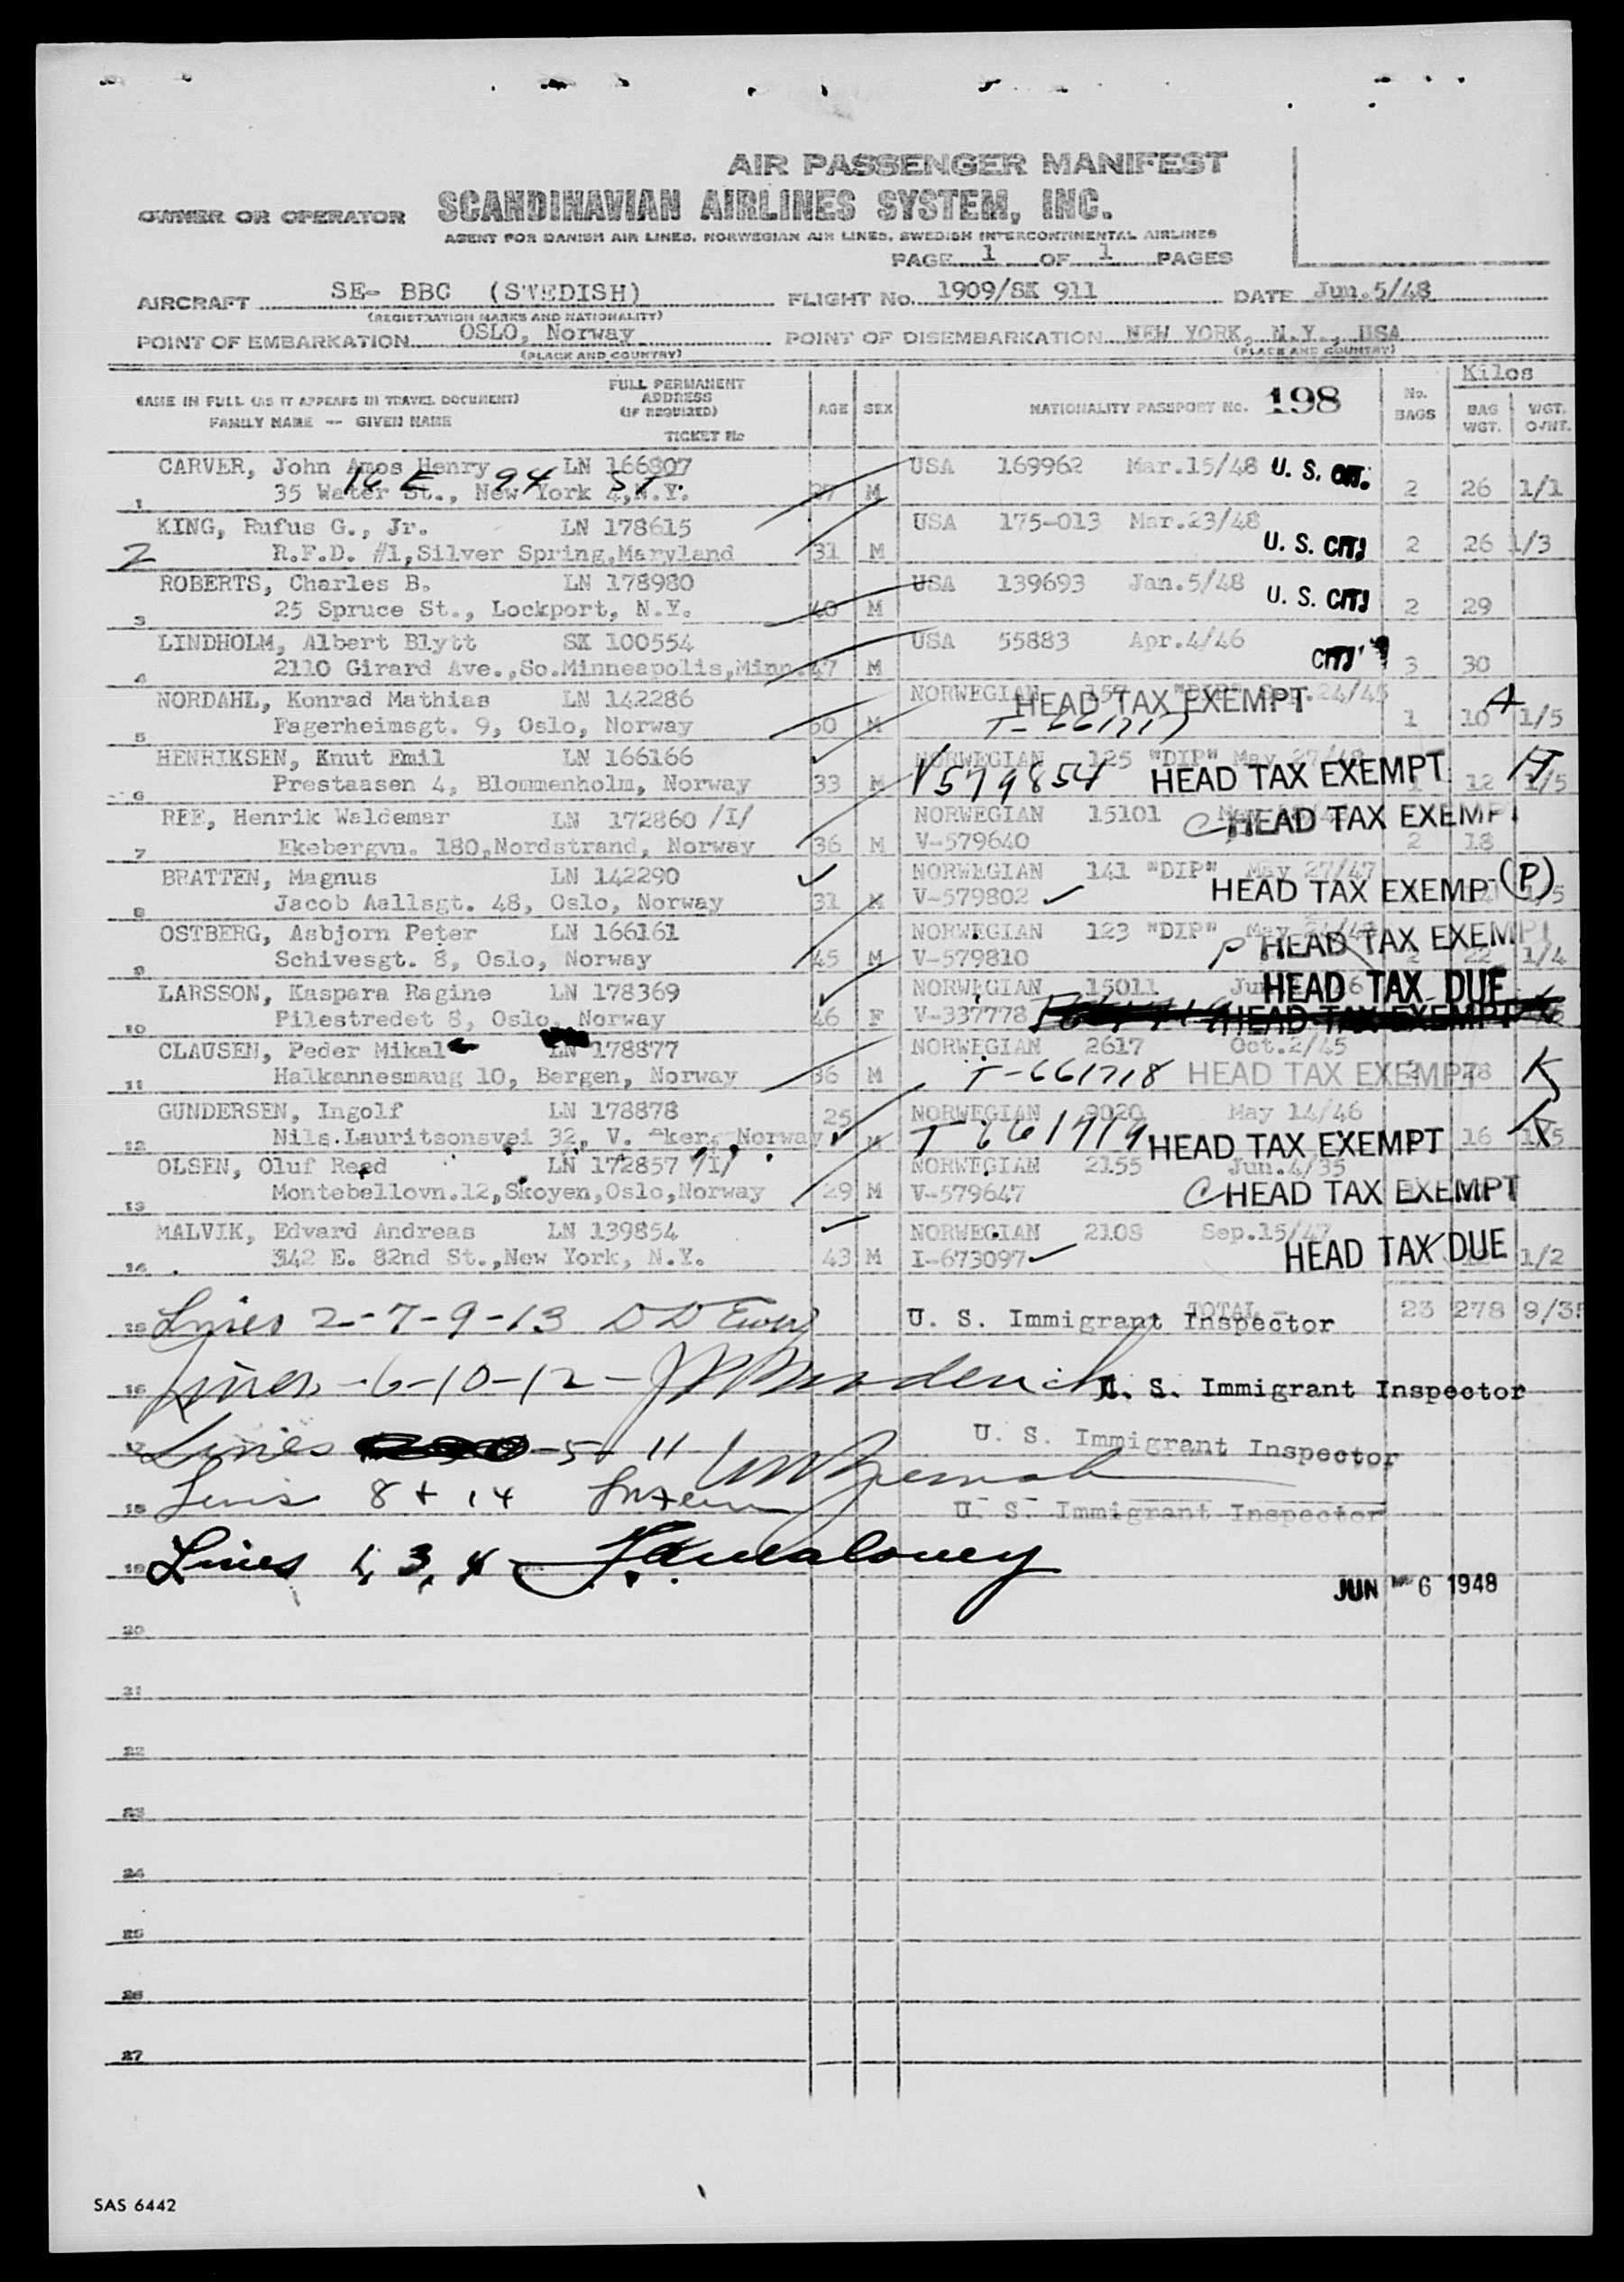 AIR PASSENGER MANIFEST
OWNER OR OPERATOR SCANDINAVIAN AIRLINES SYSTEM, INC.
AGENT FOR DANISH AIR LINES, NORWEGIAN AIR LINES, SWEDISH INTERCONTINENTAL AIRLINES
PAGE 1 OF 1 PAGES
AIRCRAFT SE- BBC (SWEDISH) FLIGHT No. 1909/SK 911 DATE Jun.5/48
(REGISTRATION MARKS AND NATIONALITY)
POINT OF EMBARKATION OSLO, Norway POINT OF DISEMBARKATION NEW YORK, N.Y., USA
(PLACE AND COUNTRY) (PLACE AND COUNTRY)
Kilos
NAME IN FULL (AS IT APPEARS IN TRAVEL DOCUMENT) FULL PERMANENT ADDRESS (IF REQUIRED) AGE SEX NATIONALITY PASSPORT No. 198 No. BAGS BAG WGT. WGT. O/NT.
FAMILY NAME -- GIVEN NAME TICKET No
CARVER, John Amos Henry LN 166807 USA 169962 Mar.15/48 U. S. CIT.
16 E 94 ST.
1 35 Water St., New York 4,N.Y. 37 M 2 26 1/1
KING, Rufus G., Jr. LN 178615 USA 175-013 Mar.23/48
2 R.F.D. #1,Silver Spring,Maryland 31 M U. S. CIT. 2 26 1/3
ROBERTS, Charles B. LN 178980 USA 139693 Jan.5/48
3 25 Spruce St., Lockport, N.Y. 40 M U. S. CIT. 2 29
LINDHOLM, Albert Blytt SK 100554 USA 55883 Apr.4/46
4 2110 Girard Ave.,So.Minneapolis,Minn. 47 M CIT. 3 30
NORDAHL, Konrad Mathias LN 142286 NORWEGIAN 157 "DIP" HEAD TAX EXEMPT
5 Fagerheimsgt. 9, Oslo, Norway 50 M T-661717 1 10 A 1/5
HENRIKSEN, Knut Emil LN 166166 NORWEGIAN 125 "DIP" May 27/48
6 Prestaasen 4, Blommenholm, Norway 33 M V579854 HEAD TAX EXEMPT 1 12 H 1/5
REE, Henrik Waldemar LN 172860 /I/ NORWEGIAN 15101 C HEAD TAX EXEMPT
7 Ekebergvn. 180,Nordstrand, Norway 36 M V-579640 2 18
BRATTEN, Magnus LN 142290 NORWEGIAN 141 "DIP" May 27/47
8 Jacob Aallsgt. 48, Oslo, Norway 31 M V-579802 HEAD TAX EXEMPT (P) 1/5
OSTBERG, Asbjorn Peter LN 166161 NORWEGIAN 123 "DIP"
9 Schivesgt. 8, Oslo, Norway 45 M V-579810 P HEAD TAX EXEMPT 2 22 1/4
LARSSON, Kaspara Ragine LN 178369 NORWEGIAN 15011 HEAD TAX DUE
10 Pilestredet 8, Oslo, Norway 46 F V-337778 HEAD TAX EXEMPT
CLAUSEN, Peder Mikal LN 178877 NORWEGIAN 2617 Oct.2/45
11 Halkannesmaug 10, Bergen, Norway 36 M T-661718 HEAD TAX EXEMPT 28 K
GUNDERSEN, Ingolf LN 178878 25 NORWEGIAN 9020 May 14/46
12 Nils.Lauritsonsvei 32, V. Aker, Norway M T 661719 HEAD TAX EXEMPT 16 K 1/5
OLSEN, Oluf Reed LN 172857 /I/ NORWEGIAN 2155 Jun.4/35
13 Montebellovn.12,Skoyen,Oslo,Norway 29 M V-579647 C HEAD TAX EXEMPT
MALVIK, Edvard Andreas LN 139854 NORWEGIAN 2108 Sep.15/47
14 342 E. 82nd St.,New York, N.Y. 43 M I-673097 HEAD TAX DUE 1/2
TOTAL - 23 278 9/35
15 Lines 2-7-9-13 U. S. Immigrant Inspector
16 Lines -6-10-12- U. S. Immigrant Inspector
17 Lines -5+ 11 U. S. Immigrant Inspector
18 Lines 8 + 14 U. S. Immigrant Inspector
19 Lines 1, 3, 4 Maloney
JUN 6 1948
20
21
22
23
24
25
26
27
SAS 6442